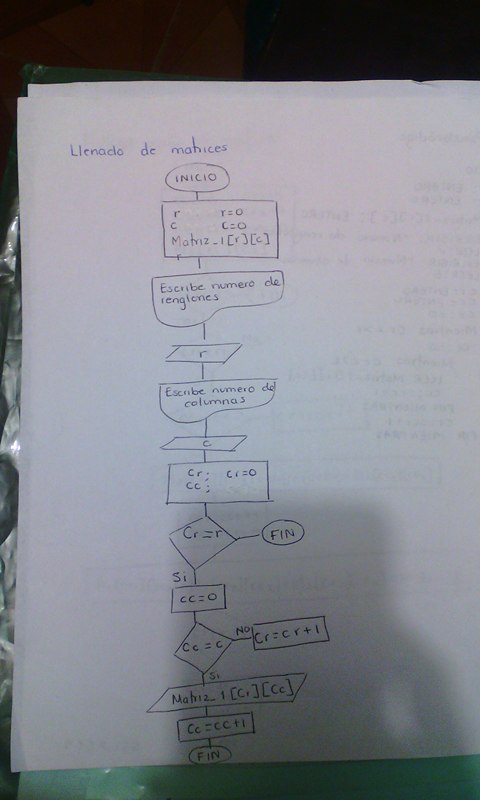 Llenado de matrices
INICIO
r r=0
c c=0
Matriz_1[r][c]
r
Escribe numero de
renglones
r
Escribe numero de
columnas
c
Cr; Cr=0
Cc;
Cr=r
FIN
Si
cc=0
Cc=c
NO
Cr=cr+1
Si
Matriz_1[Cr][Cc]
Cc=cc+1
FIN